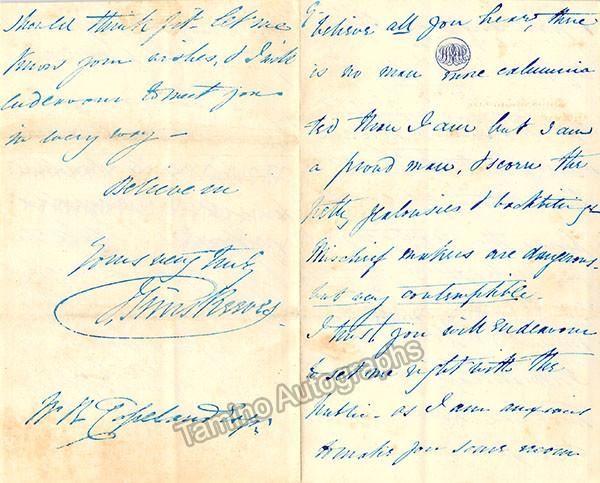 believe all you hear, there
is no man more calumnia
ted than I am but I am
a proud man, & scorn the
petty jealousies & backbitings
Mischief makers are dangerous
but very contemptible.
I trust you will endeavour
to set me right with the
Public - as I am anxious
to make you some more
should think fit. Let me
know your wishes, & I will
endeavour to meet you
in every way -
Believe me
Yours very truly
J Sims Reeves
W R Copeland Esqr
Tamino Autographs